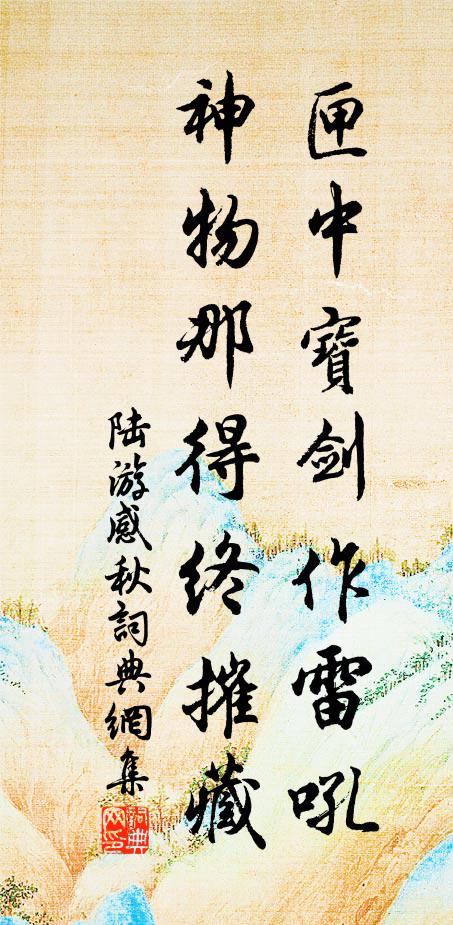 匣中寶劍作雷吼
神物那得終摧藏
陆游感秋詞典網集
詞典